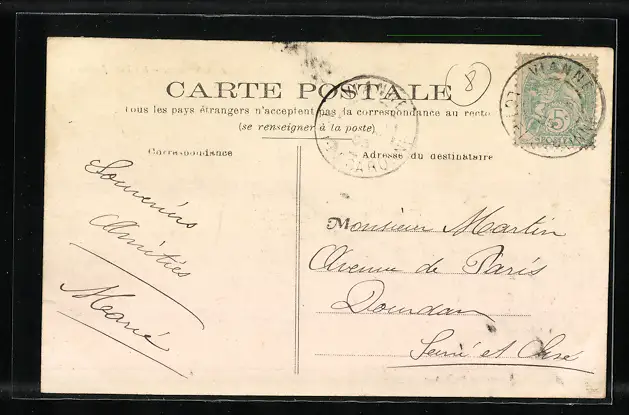 8
CARTE POSTALE
Tous les pays étrangers n'acceptent pas la correspondance au recto
(se renseigner à la poste)
Correspondance
Adresse du destinataire
VIANNE
LOT-ET-GARONNE
5c
Souvenirs
Amitiés
Marie
Monsieur Martin
Avenue de Paris
Dourdan
Seine et Oise